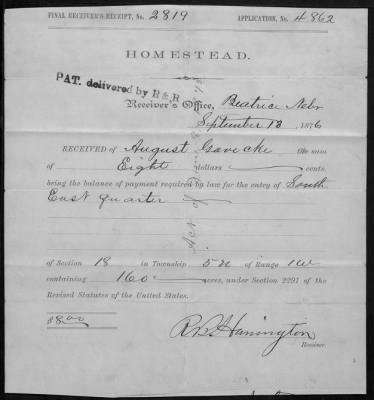 FINAL RECEIVER'S RECEIPT, No. 2819 APPLICATION, No. 4862
HOMESTEAD.
PAT. delivered by R & R
Receiver's Office, Beatrice Nebr
September 18, 1876
RECEIVED OF August the sum
of Eight dollars cents,
being the balance of payment required by law for the entry of South
East quarter
of Section 18 in Township 5 N of Range 1 W
containing 160 acres, under Section 2291 of the
Revised Statutes of the United States.
$8.00
Harrington
Receiver.
Act of